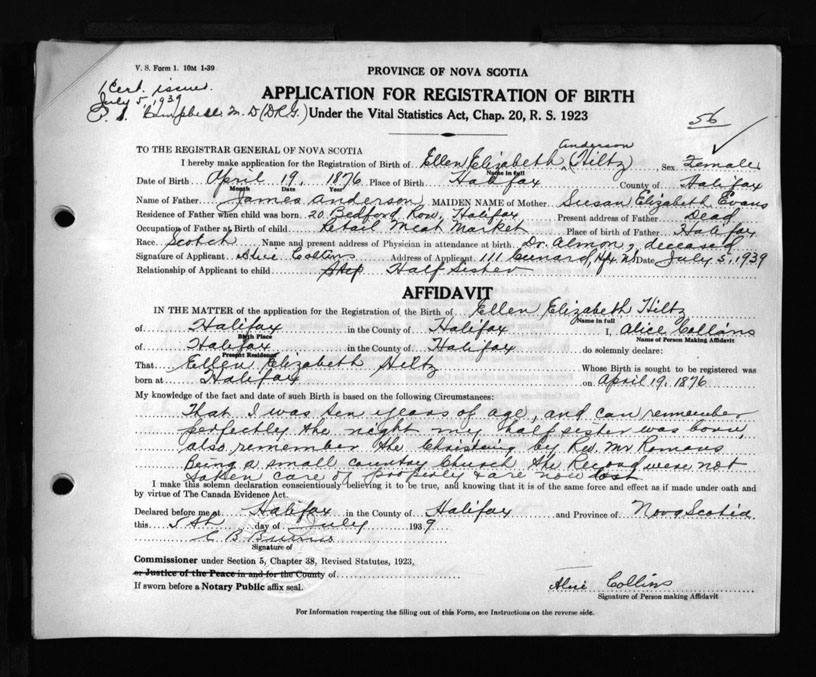 V. S. Form 1. 10M 1-39
1 Cert. issued
July 5, 1939
Campbell M.D (D.R.G.)
PROVINCE OF NOVA SCOTIA
APPLICATION FOR REGISTRATION OF BIRTH
Under the Vital Statistics Act, Chap. 20, R. S. 1923
56
TO THE REGISTRAR GENERAL OF NOVA SCOTIA
Anderson
I hereby make application for the Registration of Birth of Ellen Elizabeth (Hiltz) Sex Female
Name in full
Date of Birth April 19, 1876 Place of Birth Halifax County of Halifax
Month Date Year
Name of Father James Anderson, MAIDEN NAME of Mother Susan Elizabeth Evans
Residence of Father when child was born 20 Bedford Row, Halifax Present address of Father Dead
Occupation of Father at Birth of child Retail Meat Market Place of birth of Father Halifax
Race Scotch Name and present address of Physician in attendance at birth Dr. Almon, deceased
Signature of Applicant Alice Collins Address of Applicant 111 Cunard, Hfx NS Date July 5, 1939
Relationship of Applicant to child Step Half Sister
AFFIDAVIT
IN THE MATTER of the application for the Registration of the Birth of Ellen Elizabeth Hiltz
Name in full
of Halifax in the County of Halifax I, Alice Collins
Birth Place Name of Person Making Affidavit
of Halifax in the County of Halifax do solemnly declare:
Present Residence
That Ellen Elizabeth Hiltz Whose Birth is sought to be registered was
born at Halifax on April 19, 1876
My knowledge of the fact and date of such Birth is based on the following Circumstances:
That I was ten years of age, and can remember
perfectly the night my half sister was born,
also remember the Christning by Rev. Mr Romans
Being a small country Church the Record were not
taken care of properly & are now lost
I make this solemn declaration conscientiously believing it to be true, and knowing that it is of the same force and effect as if made under oath and
by virtue of The Canada Evidence Act.
Declared before me at Halifax in the County of Halifax and Province of Nova Scotia
this 5th day of July 1939
C B Burns
Signature of
Commissioner under Section 5, Chapter 38, Revised Statutes, 1923,
or Justice of the Peace in and for the County of
If sworn before a Notary Public affix seal.
Alice Collins
Signature of Person making Affidavit
For Information respecting the filling out of this Form, see Instructions on the reverse side.